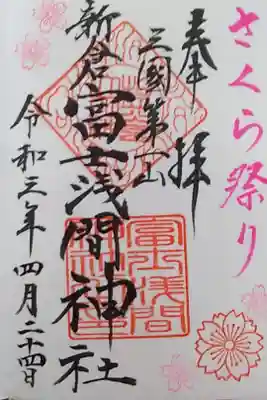 さくら祭り
奉拝
三國第一山
新倉富士浅間神社
令和三年四月二十四日
冨士浅間